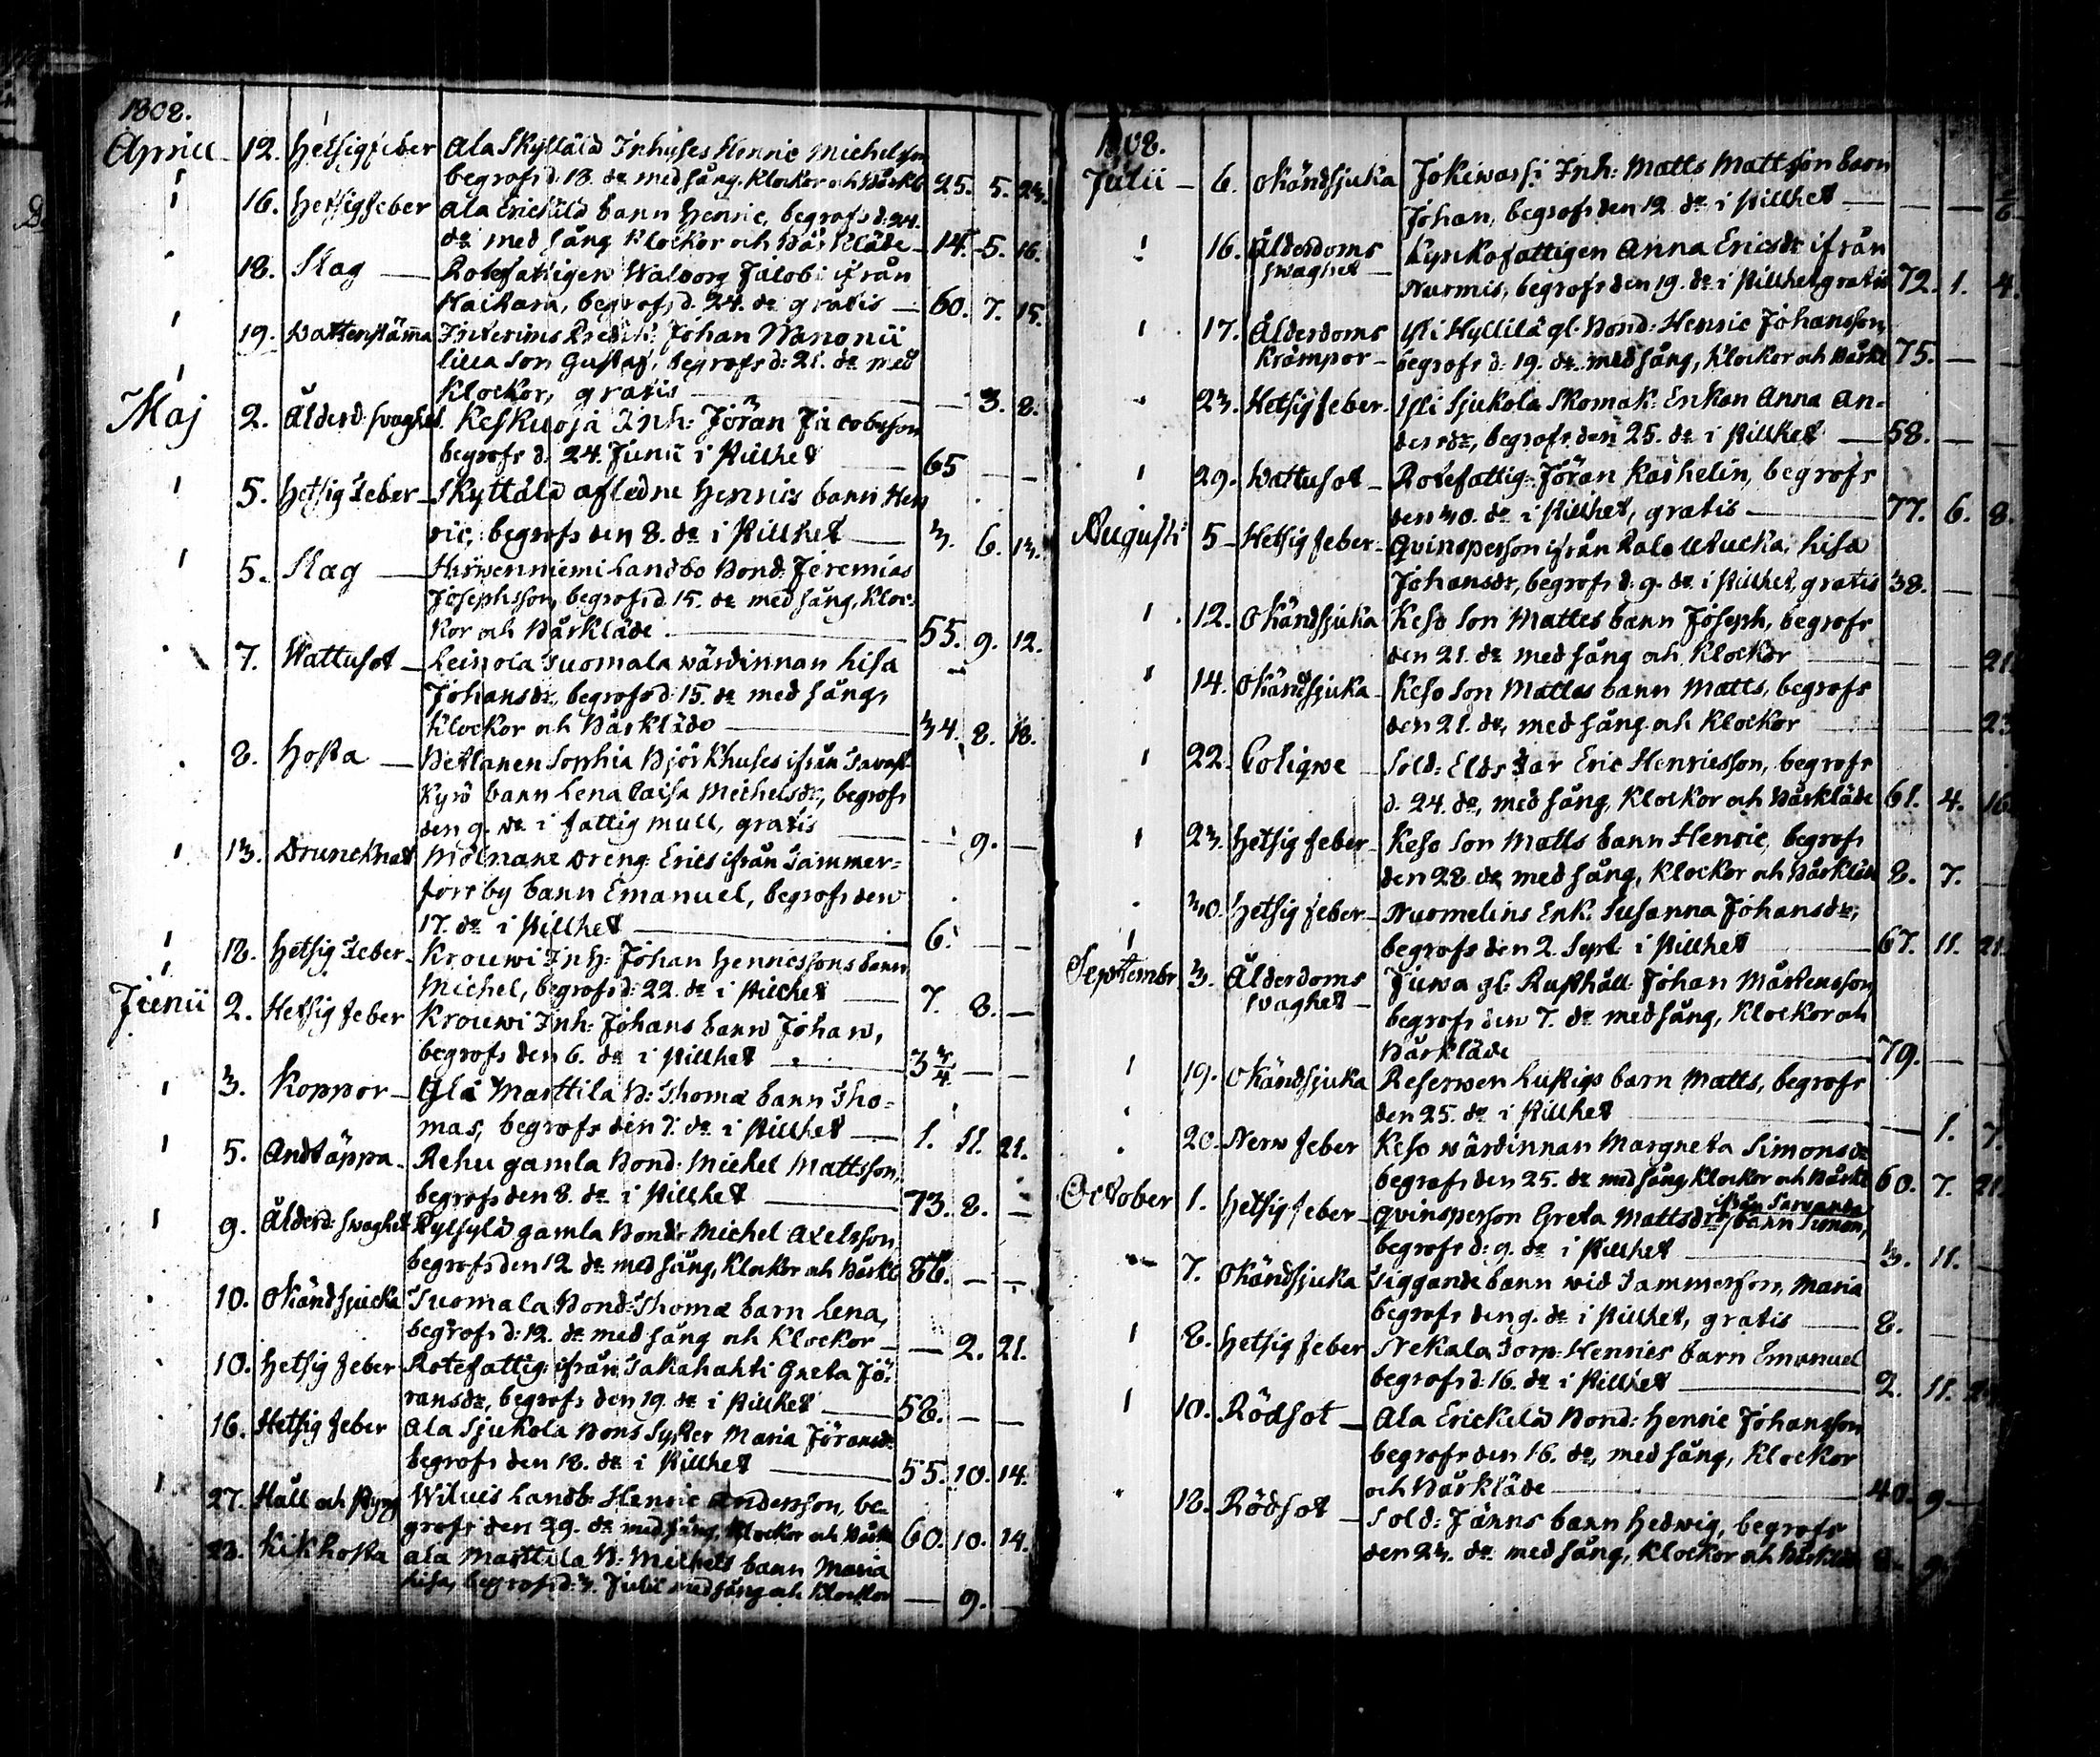 1808.
Aprill 12. Hetsig feber Ala Skyttälä Inhyses Henric Michelsson
begrofs d. 18. d:o med sång, Klockor och Bårkl. 25. 5. 24.
16. Hetsig feber Ala Erickilä barn Henric, begrofs d: 24.
d:o med sång Klockor och Bårkläde 14. 5. 16.
18. Slag Rotefattigen Walborg Jacobi ifrån
Haihara, begrofs d. 24. d:o gratis 60. 7. 15.
19. Wattenstämma Interims Predik: Johan Wanonii
lilla son Gustaf, begrofs d: 21. d:o med
Klockor, gratis — 3. 8.
Maj 2. Ålderd. svaghet Keskuoja Inh: Jöran Jacobsson
begrofs d: 24. Junii i stillhet 65 — —
5. Hetsig feber Skyttälä afledne Henrics barn Hen
ric, begrofs den 8. d:o i stillhet 3. 6. 13.
5. Slag Hirwenniemi Landbo Bond: Jeremias
Josephsson, begrofs d. 15. d:o med sång, Kloc-
kor och Bårkläde 55. 9. 12.
7. Wattusot Leinola Tuomala wärdinnan Lisa
Johansdr, begrofs d. 15. d:o med sång,
Klockor och Bårkläde 34. 8. 18.
8. Hosta Betlanen Sophia Björkhuses ifrån Tavast-
Kyrö barn Lena Caisa Michelsdr, begrofs
den 9. d:o i fattig mull, gratis — 9. —
13. Druncknat Mölnare Dreng Erics ifrån Tammer-
forss by barn Emanuel, begrofs den
17. d:o i stillhet 6. — —
18. Hetsig feber Krouwi Inh: Johan Henricssons barn
Michel, begrofs d: 22. d:o i stillhet 7. 8. —
Junii 2. Hetsig feber Krouwi Inh: Johans barn Johan,
begrofs den 6. d:o i stillhet 3 3/4. — —
3. Koppor Ala Marttila B: Thomæ barn Tho-
mas, begrofs den 7. d:o i stillhet 1. 11. 21.
5. Andtäppa Rehu gamla Bond: Michel Mattsson,
begrofs den 8. d:o i stillhet 73. 8. —
9. Ålderd: swaghet Kylsylä gamla Bond: Michel Axelsson
begrofs den 12 d:o med sång, Klockor och Bårkl. 86. — —
10. Okändsjucka Tuomala Bond: Thomæ barn Lena,
begrofs d: 12. d:o med sång och Klockor — 2. 21.
10. Hetsig feber Rotefattig: ifrån Takahahti Greta Jö-
ransdr, begrofs den 19. d:o i stillhet 58. — —
16. Hetsig feber Ala Sjukola Bons Syster Maria Jöransdr
begrofs den 18. d:o i stillhet 55. 10. 14.
27. Håll och styng Wiluis Landb: Henric Andersson, be-
grofs den 29. d:o med sång, Klockor och Bårkl. 60. 10. 14.
28. Kikhosta Ala Marttila B: Michels barn Maria
Lisa, begrofs d: 3. Julii med sång och Klockor — 9. —
1808.
Julii 6. Okändsjuka Jokiwarsi Inh: Matts Mattsson barn
Johan, begrofs den 12 d:o i stillhet — —
16. Ålderdoms Kyrkofattigen Anna Ericsdr ifrån
swaghet Nurmis, begrofs den 19. d:o i stillhet, gratis 72. 1. 4.
17. Ålderdoms Yli Hyllilä gl. Bond: Henric Johansson,
krämpor begrofs d. 19. d:o med sång, Klockor och Bårkl. 75. — —
23. Hetsig feber Yli Sjukola Skomak: Enkan Anna An-
dersdr, begrofs den 25. d:o i stillhet 58. — —
29. Wattusot Rotefattig: Jöran Kashelin, begrofs
den 30. d:o i stillhet, gratis 77. 6. 8.
Augusti 5 Hetsig feber Qvinsperson ifrån Lisa
Johansdr, begrofs d. 9. d:o i stillhet, gratis 38. — —
12. Okändsjuka Keso Son Mattes barn Joseph, begrofs
den 21. d:o med sång och Klockor — — 21.
14. Okändsjuka Keso Son Mattes barn Matts, begrofs
den 21. d:o, med sång och Klockor — — 23
22. Coliqve Sold: Eldstar Eric Henricsson, begrofs
d. 24. d:o, med sång, Klockor och Bårkläde 61. 4. 16.
23. Hetsig feber Keso Son Matts barn Henric, begrofs
den 28. d:o med sång, Klockor och Bårkläde 8. 7. —
30. Hetsig feber Nurmelins Enk: Susanna Johansdr,
begrofs den 2. Sept i stillhet 67. 11. 21.
Septembr 3. Ålderdoms Juwa gl: Rusthåll: Johan Mårtensson,
svaghet begrofs den 7. d:o med sång, Klockor och
Bårkläde 79. — —
19. Okändsjuka Reserwen Lustigs barn Matts, begrofs
den 25. d:o i stillhet — 1. 7.
20. Nerw feber Keso wärdinnan Margreta Simonsdr
begrofs den 25. d:o med sång Klockor och Bårkl. 60. 7. 21.
ifrån Sarvanta
October 1. Hetsig feber Qvinsperson Greta Mattsdrs barn Simon,
begrofs d: 9. d:o i stillhet 3. 11. —
7. Okändsjuka Tiggande barn wid Tammerfors, Maria
begrofs den 9. d:o i stillhet, gratis 8. — —
8. Hetsig feber Nekala Torp: Henrics barn Emanuel
begrofs d: 16. d:o i stillhet 2. 11.
10. Rödsot Ala Erickilä Bond: Henric Johansson
begrofs den 16. d:o, med sång, Klockor
och Bårkläde 40. 9 —
18. Rödsot Sold: Jänns barn Hedwig, begrofs
den 23. d:o med sång, Klockor och Bårkläde 9